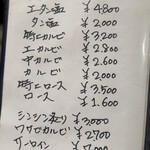 上タン塩 ¥4800
タン塩 ¥2,000
特上カルビ ¥3,200
上カルビ ¥2.800
中カルビ ¥2.600
カルビ ¥2,000
特上ロース ¥3,500
ロース ¥1.600
シンシン ¥3,000
ワサビカルビ ¥2700
サーロイン